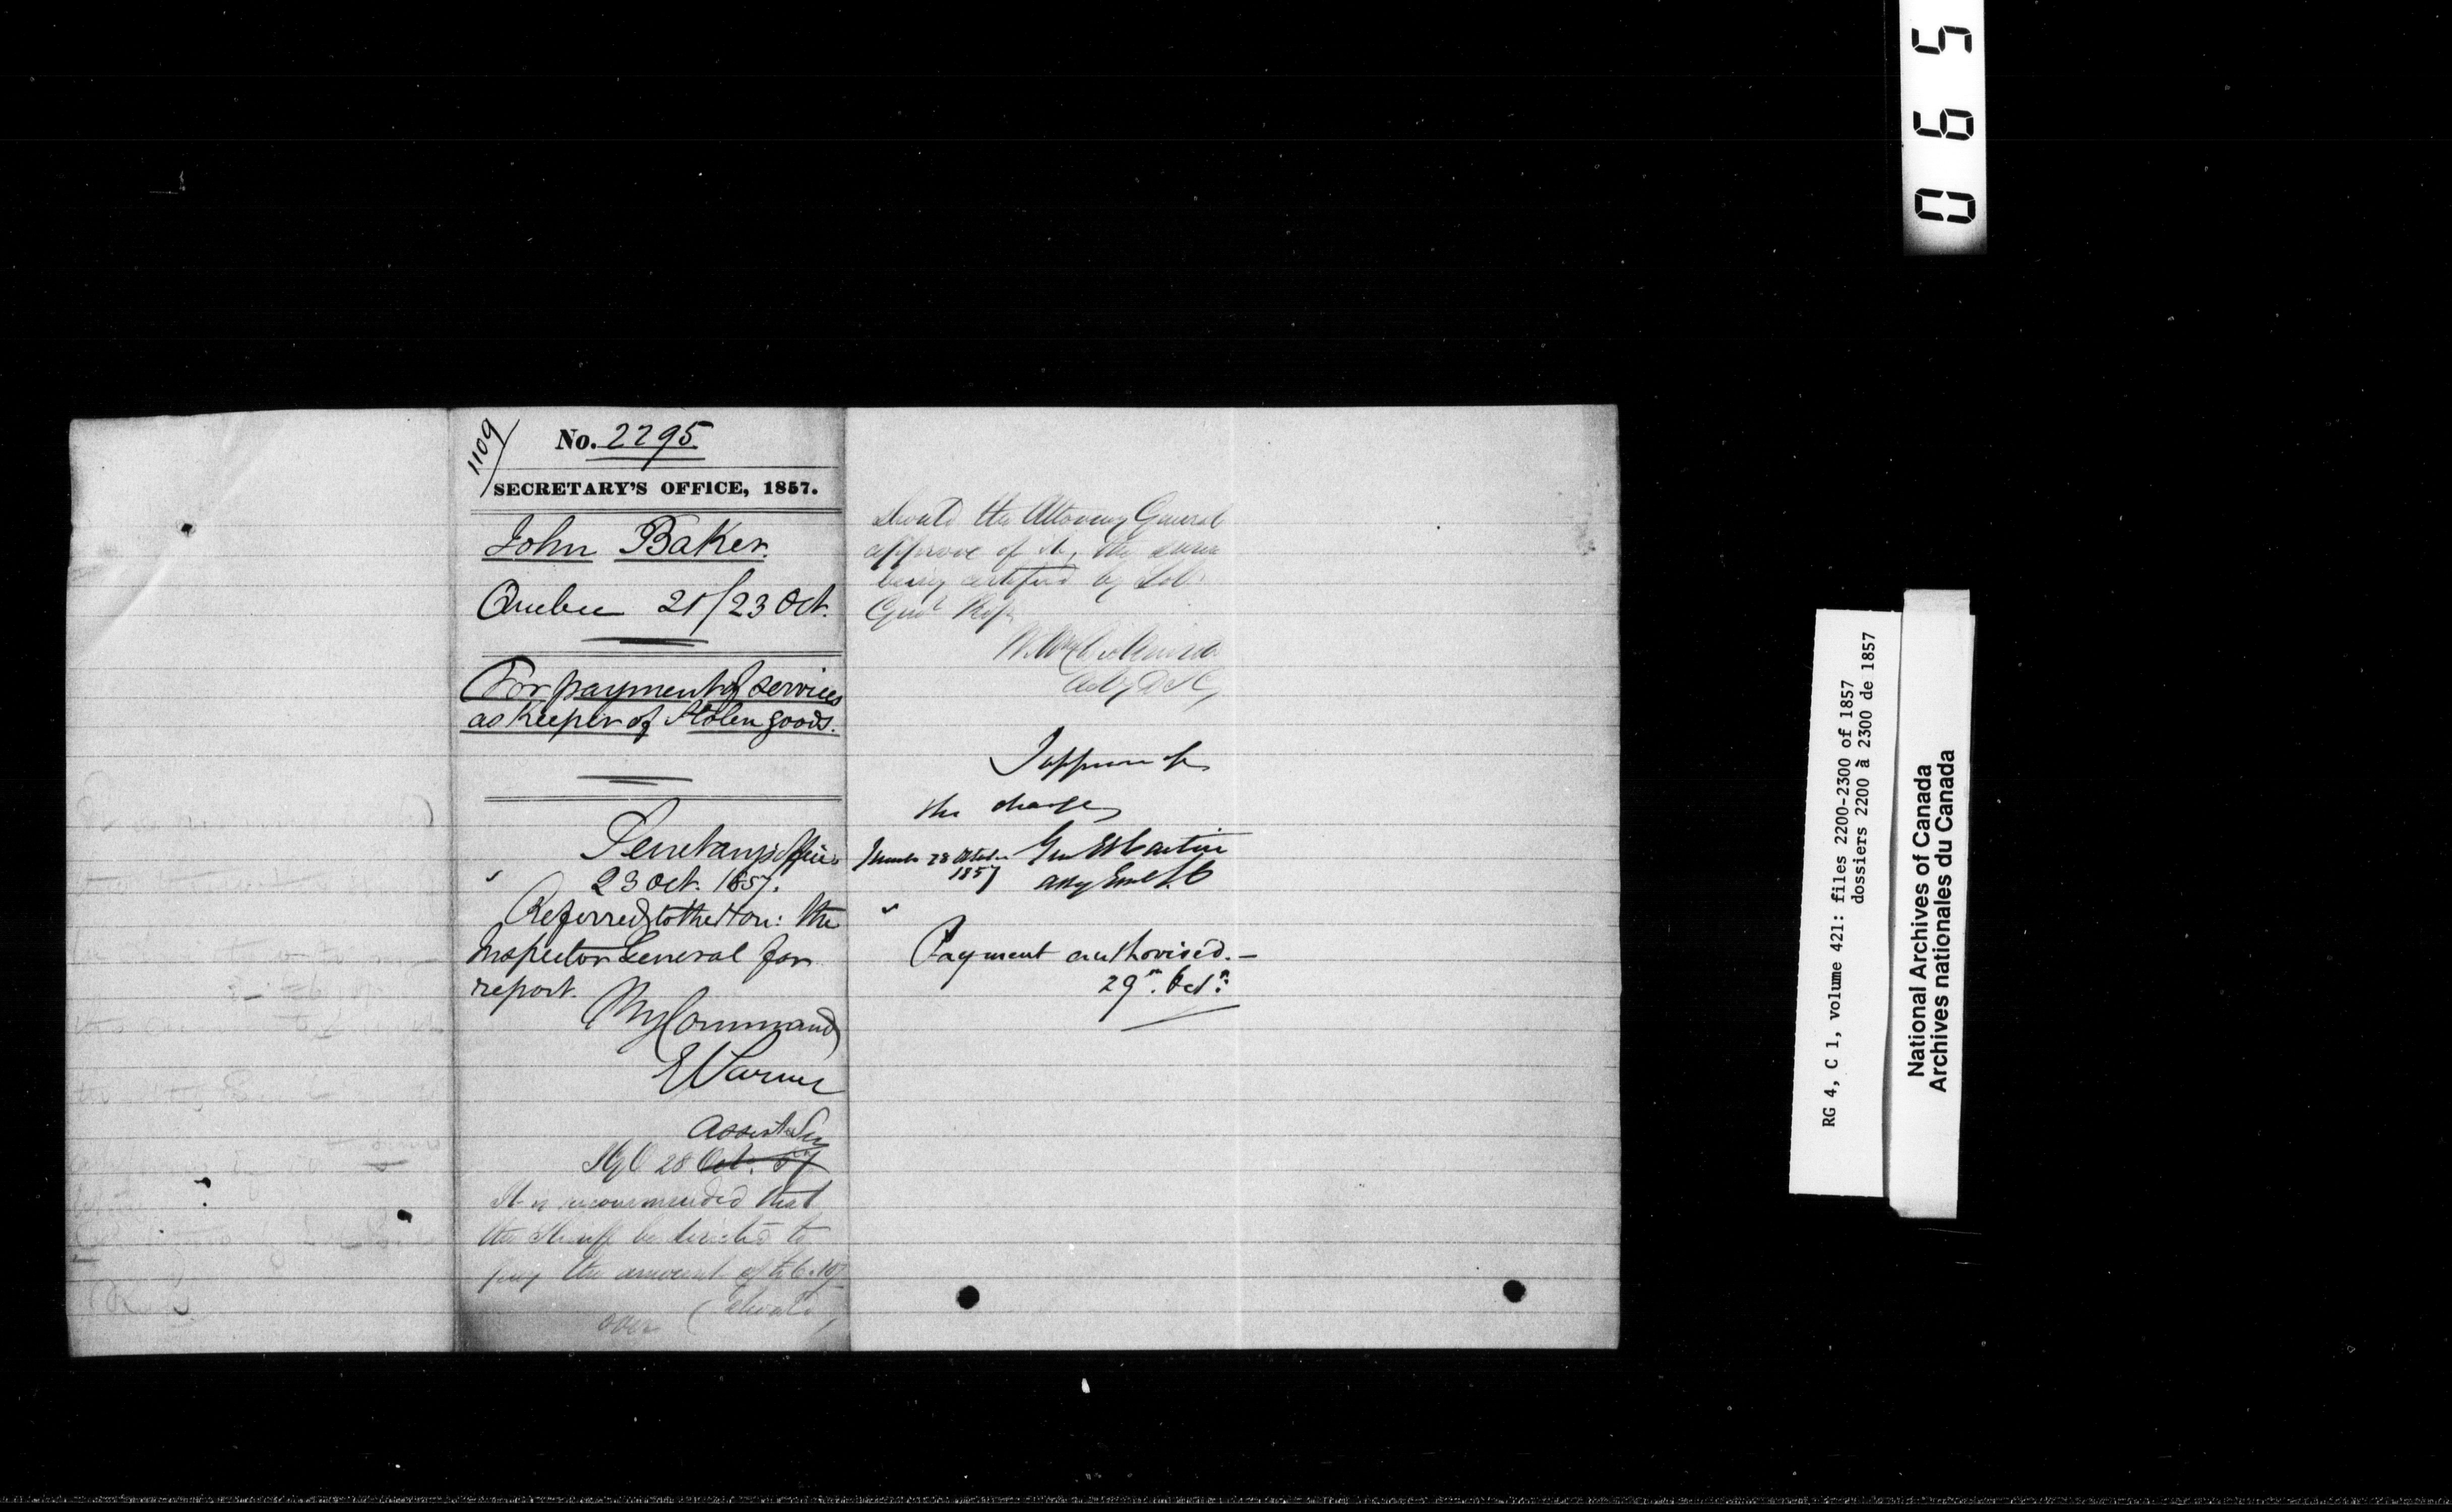 1109
No. 2295
SECRETARY'S OFFICE, 1857.
John Baker.
Quebec 21/23 Oct.
For payment of services
as keeper of stolen goods.
Secretary's Office
23 Oct. 1857.
Referred to the Hon: the
Inspector General for
report.
By Command
E Parent
Assist Secy
28 Oct. 57
It is recommended that
the Sheriff be directed to
pay the amount of
over (should
should the Attorney General
approve of it, the same
being certified by Sol.
Genl
I approve of
the charge
Toronto 28 October
1857
Geo Et Cartier
Atty Genl L.C
Payment authorised. –
29th. Oct.
065
RG 4, C 1, volume 421: files 2200-2300 of 1857
dossiers 2200 à 2300 de 1857
National Archives of Canada
Archives nationales du Canada